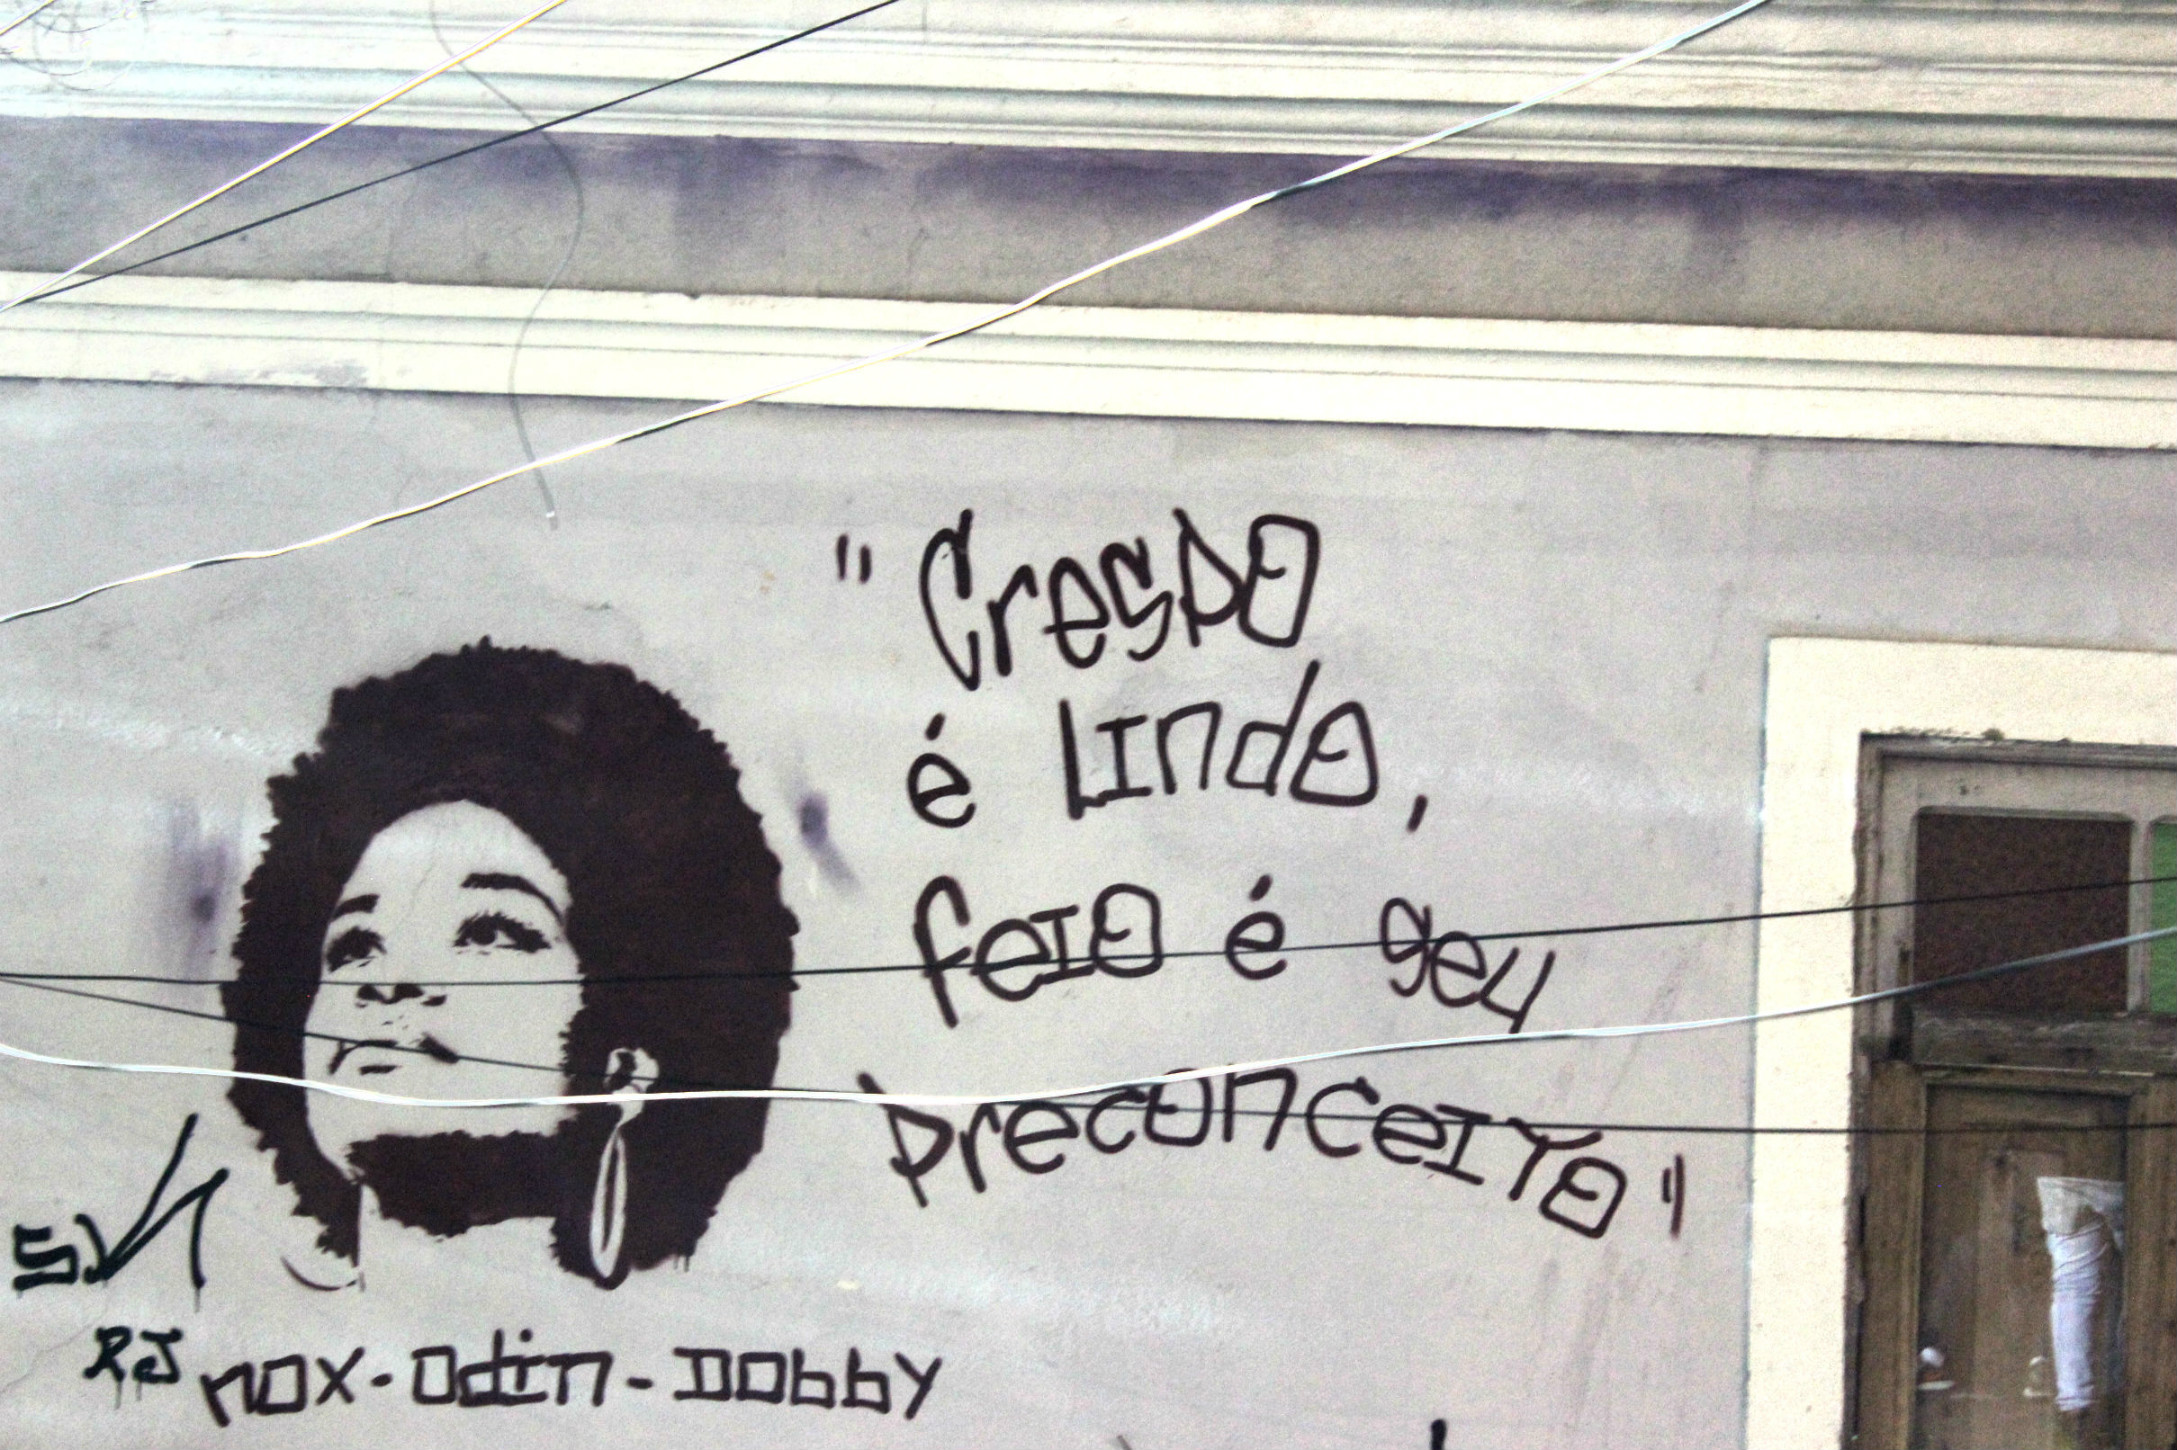 "Crespo
é Lindo,
feio é seu
preconceito"
RJ
nox-Odin-Dobby